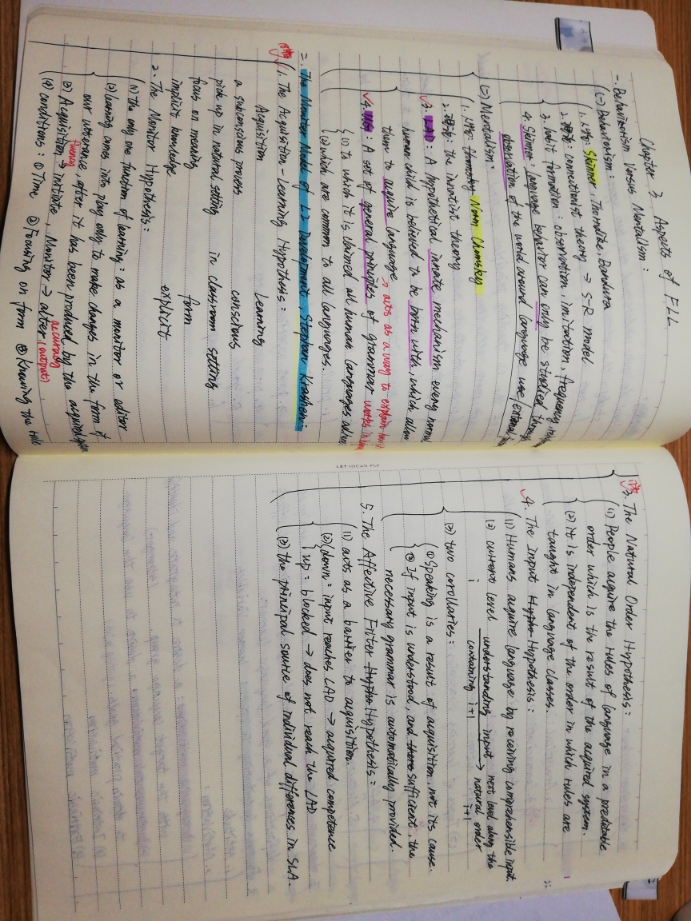 Chapter 3 Aspects of FLL
一. Behaviorism Versus Mentalism:
(一) Behaviorism:
1. 人物: Skinner, Thorndike, Bandura
2. connectionist theory → S-R model
3. habit formation: observation, imitation, frequency
4. Skinner: language behavior can only be studied through
observation of the world around language use (external
(二) Mentalism:
1. 人物: Noam Chomsky
2. the innatist theory
3. LAD: A hypothetical innate mechanism every normal
human child is believed to be born with, which allow
them to acquire language.
→ acts as a way to explain
4. A set of general principles of grammar works
(1) to which it is claimed all human languages
(2) which are common to all languages.
二. The Monitor Model of L2 Development, Stephen Krashen:
1. The Acquisition-Learning Hypothesis:
Acquisition Learning
a subconscious process conscious
pick up in natural setting in classroom setting
focus on meaning form
implicit knowledge explicit
2. The Monitor Hypothesis:
(1) the only one function of learning: as a monitor or editor
(2) Learning comes into play only to make changes in the form of
our utterance, after it has been produced by the acquired
(3) Acquisition → initiate, Monitor → alter (output)
fluency accuracy
(4) conditions: ① Time ② Focusing on form ③ Knowing the
3. The Natural Order Hypothesis:
(1) People acquire the rules of language in a predictable
order which is the result of the acquired system.
(2) it is independent of the order in which rules are
taught in language classes.
4. The Input Hypothesis:
(1) Humans acquire language by receiving comprehensible input.
(2) current level understanding input next level along the
i containing i+1 natural order
i+1
(3) two corollaries:
① Speaking is a result of acquisition, not its cause.
② If input is understood, and sufficient, the
necessary grammar is automatically provided.
5. The Affective Filter Hypothesis:
(1) acts as a barrier to acquisition.
(2) down: input reaches LAD → acquired competence
up: blocked → does not reach the LAD
(3) the principal source of individual differences in SLA.